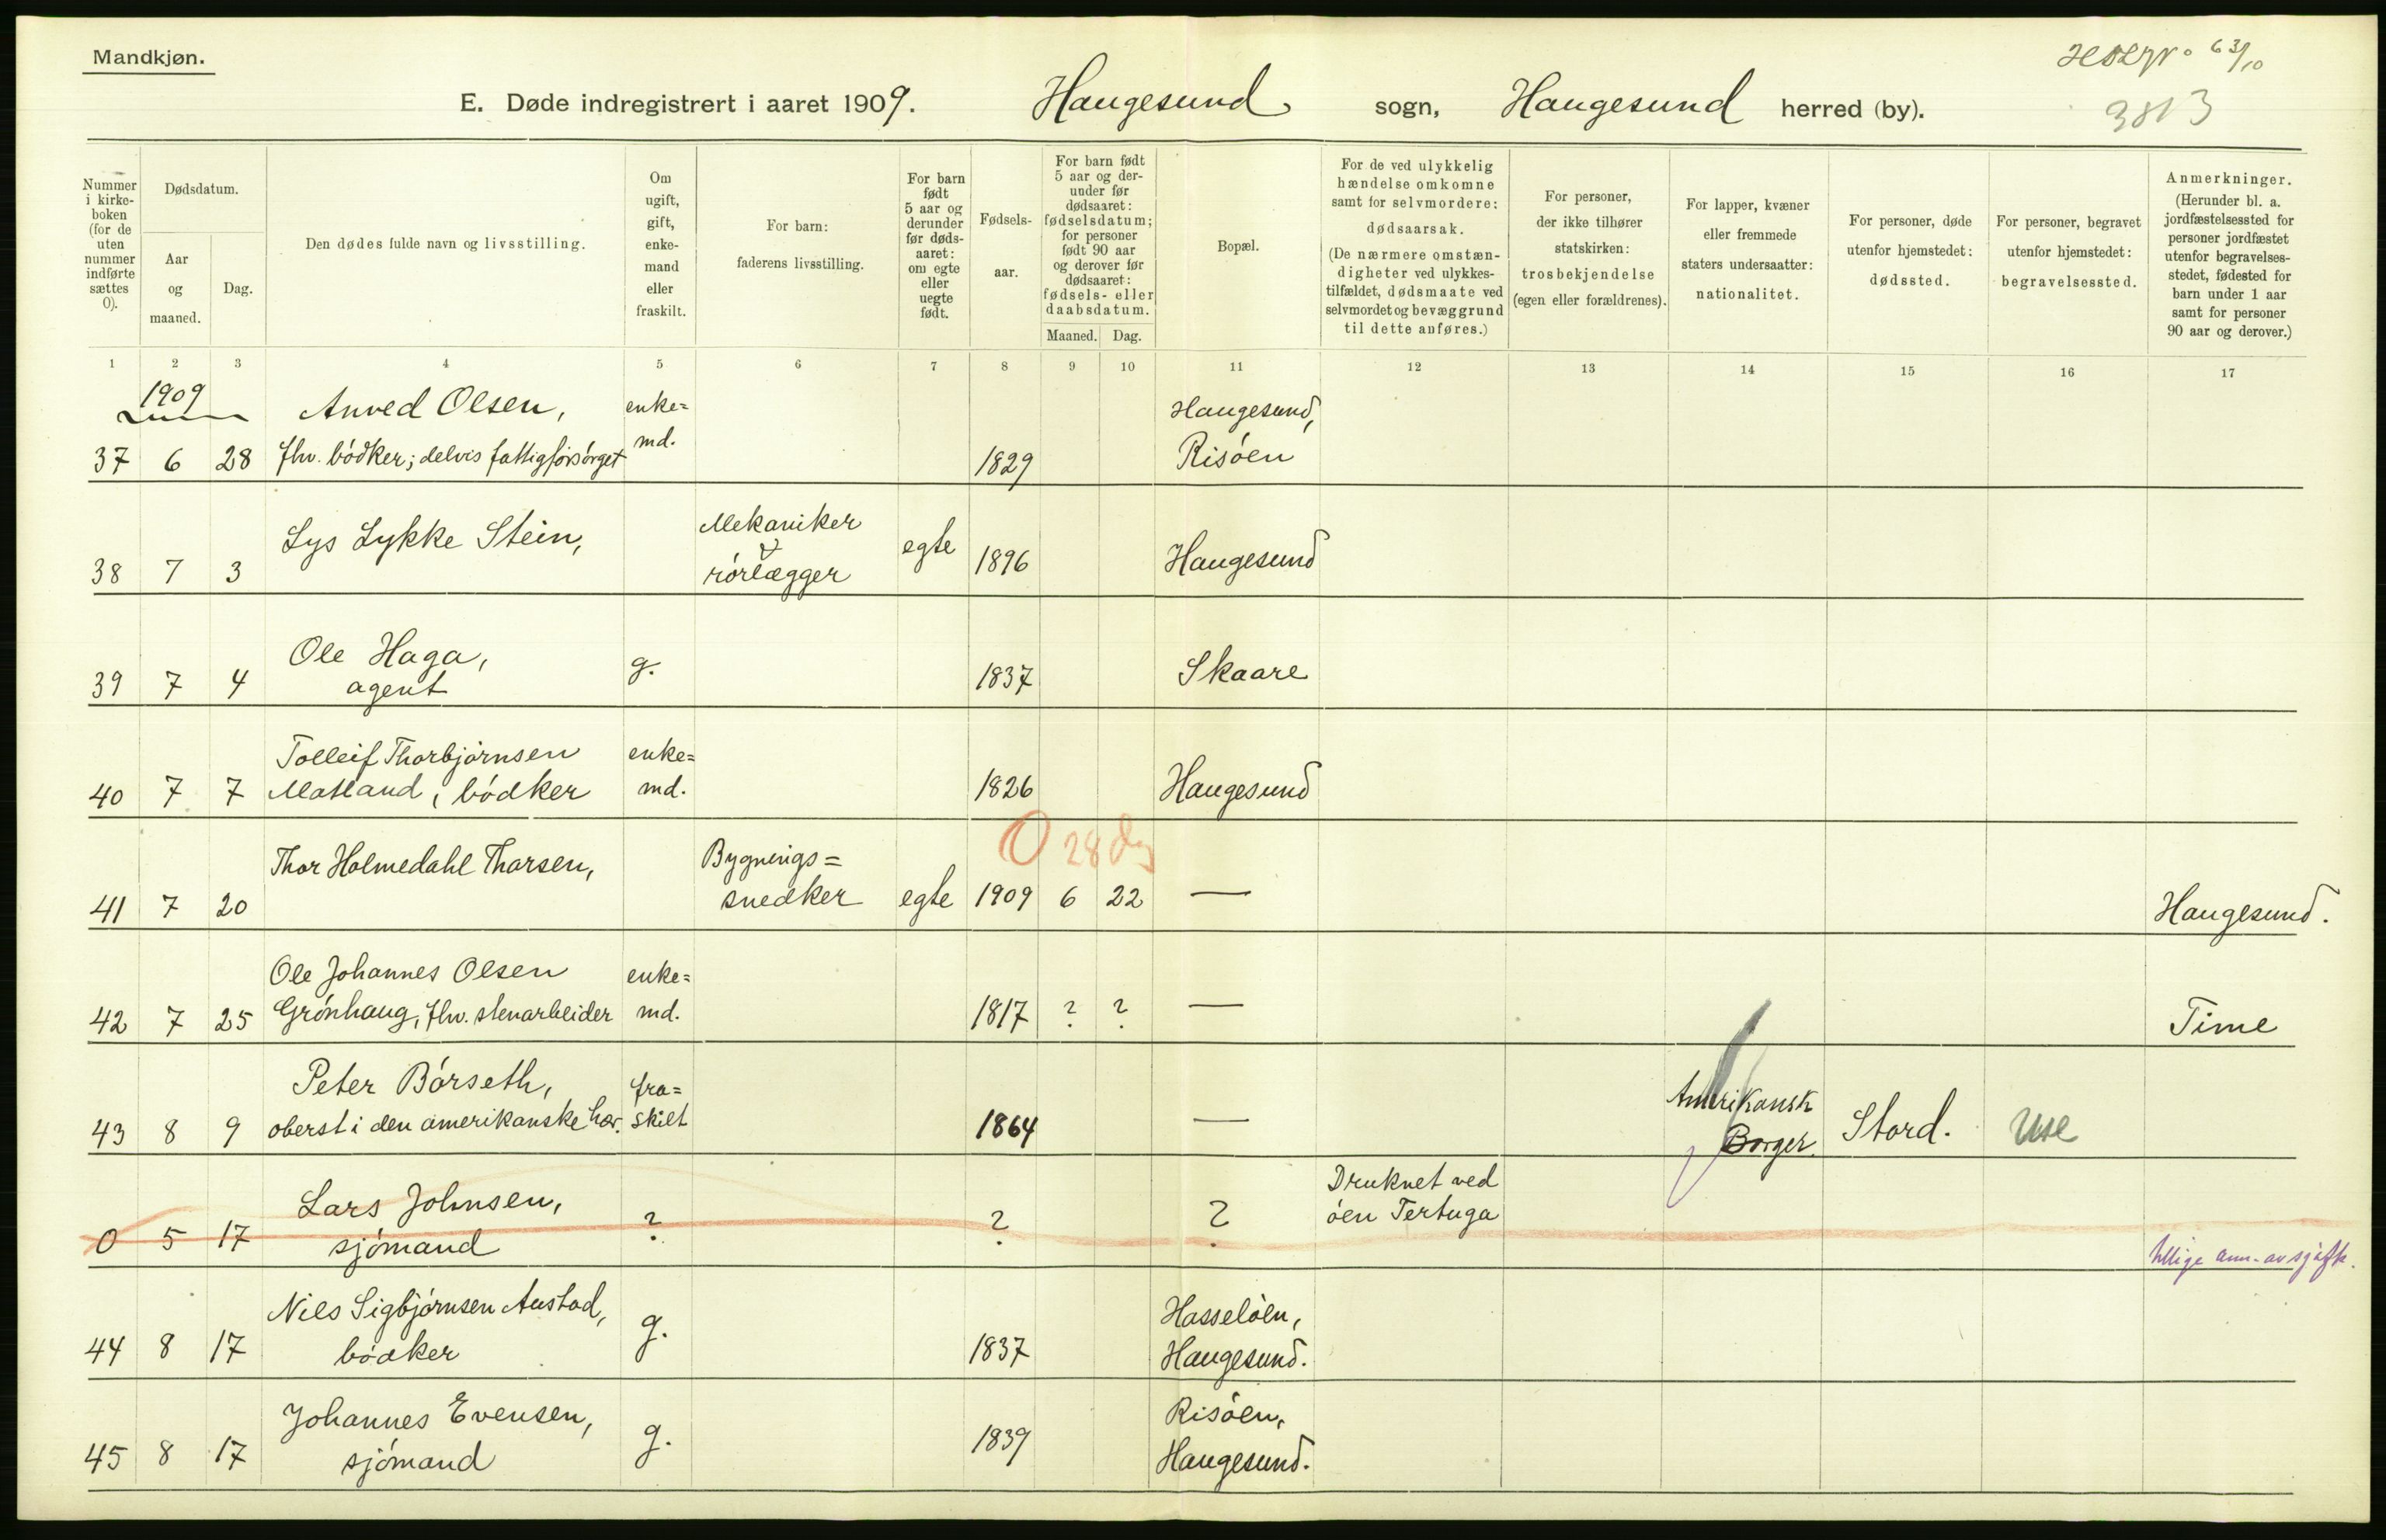 Mandkjøn.
63/10
3813
E. Døde indregistrert i aaret 1909. Haugesund sogn, Haugesund herred (by).
Nummer i kirke-boken (for de uten nummer indførte sættes 0).
Dødsdatum.
Aar og maaned.
Dag.
Den dødes fulde navn og livsstilling.
Om ugift, gift, enke-mand eller fraskilt.
For barn: faderens livsstilling.
For barn født 5 aar og derunder før døds-aaret: om egte eller uegte født.
Fødsels-aar.
For barn født 5 aar og der-under før dødsaaret: fødselsdatum; for personer født 90 aar og derover før dødsaaret: fødsels- eller daabsdatum.
Maaned. Dag.
Bopæl.
For de ved ulykkelig hændelse omkomne samt for selvmordere: dødsaarsak. (De nærmere omstæn-digheter ved ulykkes-tilfældet, dødsmaate ved selvmordet og bevæggrund til dette anføres.)
For personer, der ikke tilhører statskirken: trosbekjendelse (egen eller forældrenes).
For lapper, kvæner eller fremmede staters undersaatter: nationalitet.
For personer, døde utenfor hjemstedet: dødssted.
For personer, begravet utenfor hjemstedet: begravelsessted.
Anmerkninger. (Herunder bl. a. jordfæstelsessted for personer jordfæstet utenfor begravelses-stedet, fødested for barn under 1 aar samt for personer 90 aar og derover.)
1 2 3 4 5 6 7 8 9 10 11 12 13 14 15 16 17
1909
Anved Olsen, enke= Haugesund,
37 6 28 fhv. bódker; delvis fattigforsórget md. 1829 Risóen
Lys Lykke Stein, Mekaniker
38 7 3 & rórlægger egte 1896 Haugesund
Ole Haga,
39 7 4 agent g. 1837 Skaare
Tolleif Thorbjórnsen enke=
40 7 7 Matland, bódker md. 1826 Haugesund
0 28 dg
Thor Holmedahl Thorsen, Bygnings=
41 7 20 snedker egte 1909 6 22 — Haugesund.
Ole Johannes Olsen enke=
42 7 25 Grónhaug, fhv. stenarbeider md. 1817 ? ? — Time
Peter Bórseth, fra= Amerikansk
43 8 9 oberst i den amerikanske hær. skilt 1864 — Borger Stord. Use
Lars Johnsen, Druknet ved
0 5 17 sjómand ? ? ? óen Tertuga
44 8 17 Nils Sigbjórnsen Austad, g. 1837 Hasselóen,
bódker Haugesund.
Johannes Evensen, Risóen,
45 8 17 sjómand g. 1839 Haugesund.